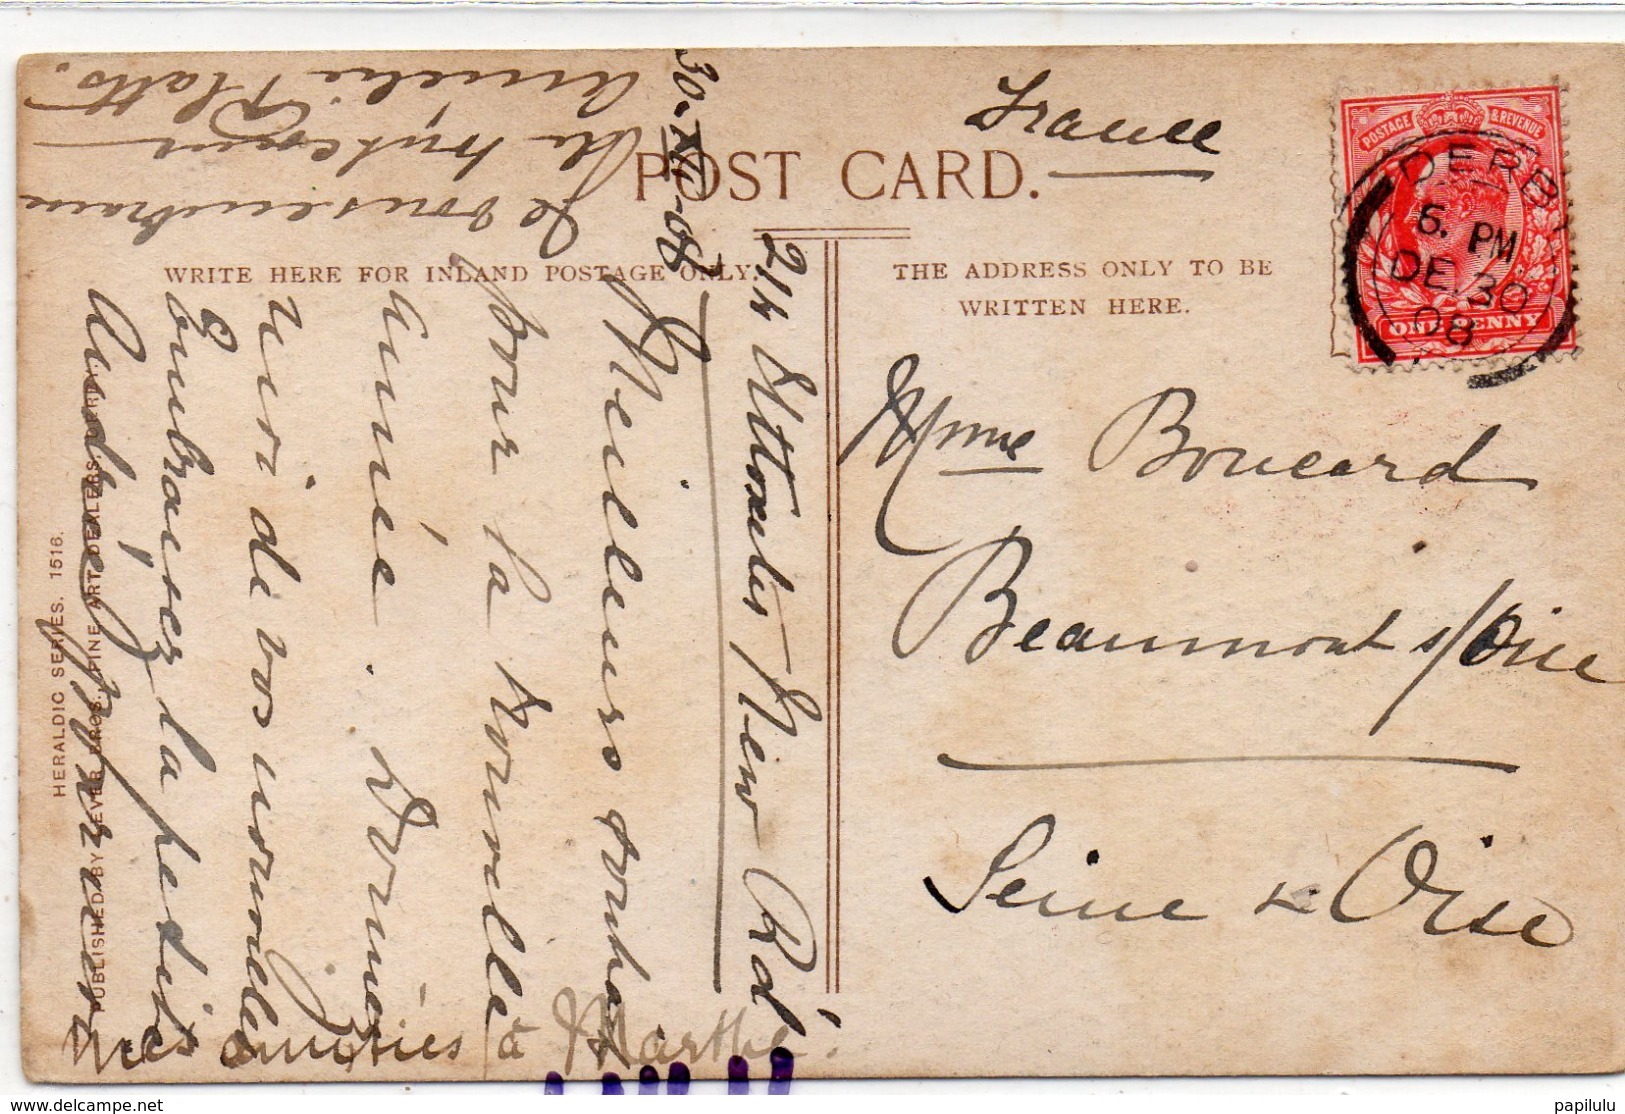 France
POST CARD.
WRITE HERE FOR INLAND POSTAGE ONLY.
THE ADDRESS ONLY TO BE
WRITTEN HERE.
POSTAGE & REVENUE
ONE PENNY
DERBY
6. PM
DE 30
08
Mme Boucard
Beaumont s/Oise
Seine & Oise
30-XII-08
214 Uttoxeter New Rd.
Meilleurs souhaits
pour la Nouvelle
Année. Donnez
moi de vos nouvelles
Embrassez la petite
Andrée
mes amitiés à Marthe.
Je vous embrasse
Amélie Platts.
HERALDIC SERIES. 1516.
PUBLISHED BY BROS. FINE ART DEALERS. DERBY.
www.delcampe.net
papilulu